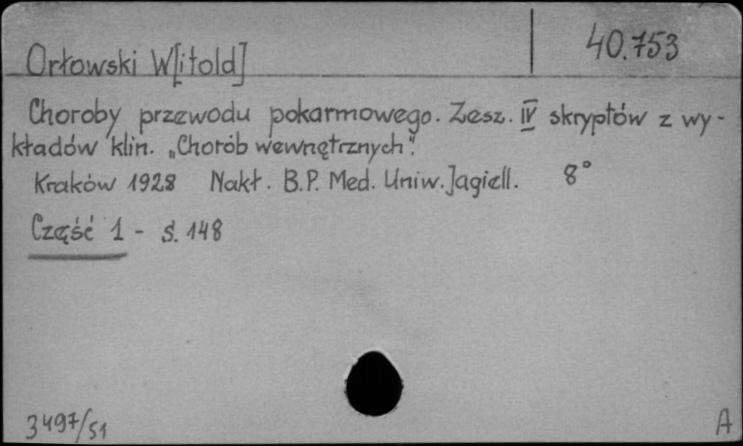 40.753
Orłowski W[itold]
Choroby przewodu pokarmowego. Zesz. IV skryptów z wy-
kładów klin. „Chorób wewnętrznych".
Kraków 1928 Nakł. B.P. Med. Uniw. Jagiell. 8°
Część 1 - S. 148
3497/51
A